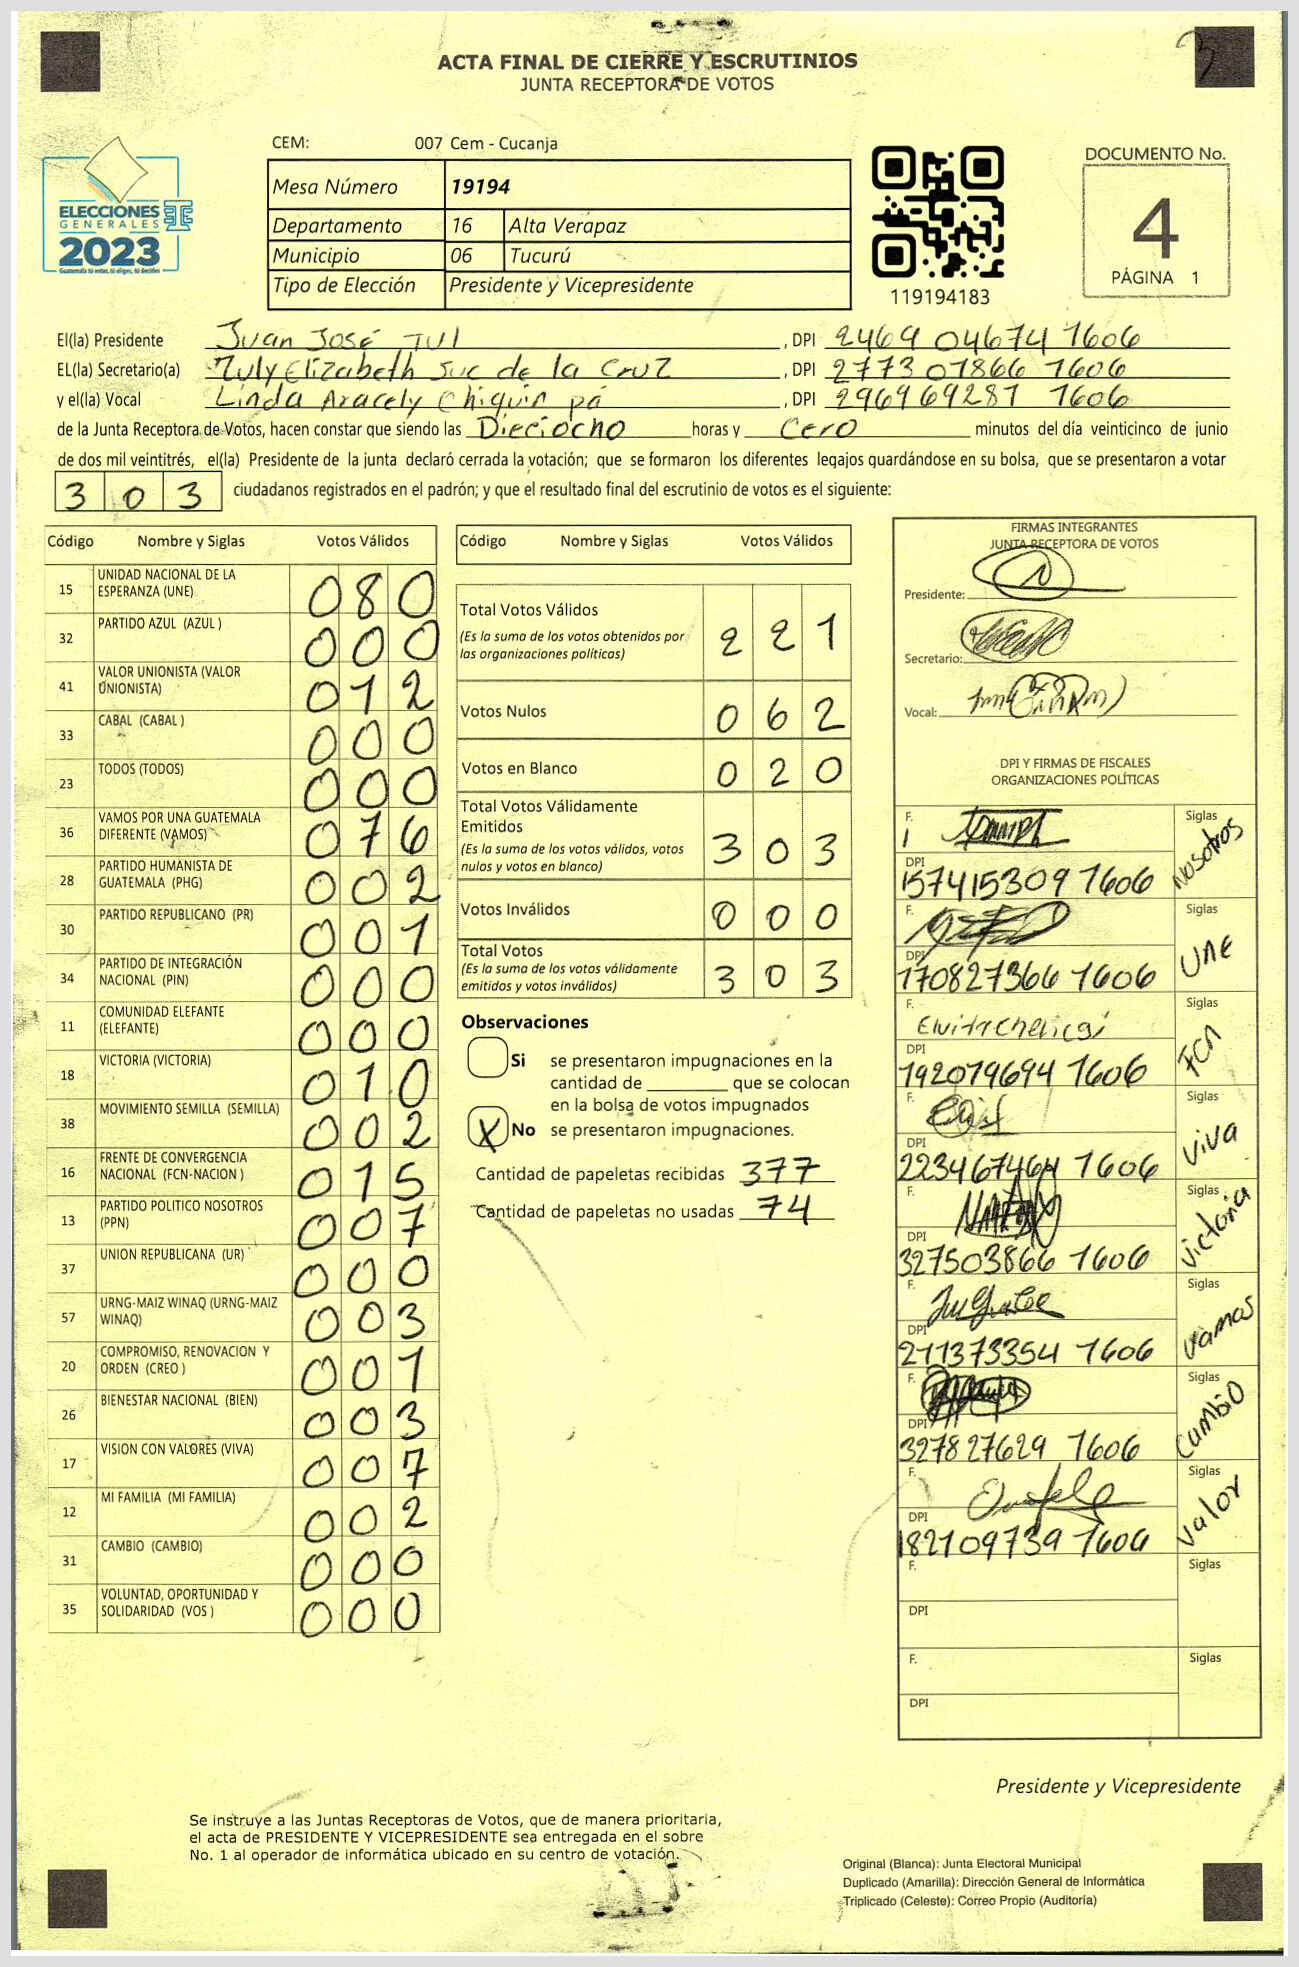 ACTA FINAL DE CIERRE Y ESCRUTINIOS
JUNTA RECEPTORA DE VOTOS
CEM: 007 Cem - Cucanja
Mesa Número 19194
Departamento 16 Alta Verapaz
Municipio 06 Tucurú
Tipo de Elección Presidente y Vicepresidente
ELECCIONES
GENERALES
2023
119194183
DOCUMENTO No.
4
PÁGINA 1
El(la) Presidente Juan José Tul , DPI 2469 04674 1606
EL(la) Secretario(a) Zuly Elizabeth Suc de la Cruz , DPI 2773 07866 1606
y el(la) Vocal Linda Aracely Chiquin pá , DPI 296969287 1606
de la Junta Receptora de Votos, hacen constar que siendo las Dieciocho horas y Cero minutos del día veinticinco de junio
de dos mil veintitrés, el(la) Presidente de la junta declaró cerrada la votación; que se formaron los diferentes legajos guardándose en su bolsa, que se presentaron a votar
303 ciudadanos registrados en el padrón; y que el resultado final del escrutinio de votos es el siguiente:
Código Nombre y Siglas Votos Válidos
15 UNIDAD NACIONAL DE LA ESPERANZA (UNE) 080
32 PARTIDO AZUL (AZUL ) 000
41 VALOR UNIONISTA (VALOR UNIONISTA) 012
33 CABAL (CABAL ) 000
23 TODOS (TODOS) 000
36 VAMOS POR UNA GUATEMALA DIFERENTE (VAMOS) 076
28 PARTIDO HUMANISTA DE GUATEMALA (PHG) 002
30 PARTIDO REPUBLICANO (PR) 001
34 PARTIDO DE INTEGRACIÓN NACIONAL (PIN) 000
11 COMUNIDAD ELEFANTE (ELEFANTE) 000
18 VICTORIA (VICTORIA) 010
38 MOVIMIENTO SEMILLA (SEMILLA) 002
16 FRENTE DE CONVERGENCIA NACIONAL (FCN-NACION ) 015
13 PARTIDO POLITICO NOSOTROS (PPN) 007
37 UNION REPUBLICANA (UR) 000
57 URNG-MAIZ WINAQ (URNG-MAIZ WINAQ) 003
20 COMPROMISO, RENOVACION Y ORDEN (CREO ) 001
26 BIENESTAR NACIONAL (BIEN) 003
17 VISION CON VALORES (VIVA) 007
12 MI FAMILIA (MI FAMILIA) 002
31 CAMBIO (CAMBIO) 000
35 VOLUNTAD, OPORTUNIDAD Y SOLIDARIDAD (VOS ) 000
Código Nombre y Siglas Votos Válidos
Total Votos Válidos 221
(Es la suma de los votos obtenidos por
las organizaciones políticas)
Votos Nulos 062
Votos en Blanco 020
Total Votos Válidamente
Emitidos 303
(Es la suma de los votos válidos, votos
nulos y votos en blanco)
Votos Inválidos 000
Total Votos 303
(Es la suma de los votos válidamente
emitidos y votos inválidos)
Observaciones
Si se presentaron impugnaciones en la
cantidad de ________ que se colocan
en la bolsa de votos impugnados
X No se presentaron impugnaciones.
Cantidad de papeletas recibidas 377
Cantidad de papeletas no usadas 74
FIRMAS INTEGRANTES
JUNTA RECEPTORA DE VOTOS
Presidente:
Secretario:
Vocal:
DPI Y FIRMAS DE FISCALES
ORGANIZACIONES POLÍTICAS
F. Siglas Nosotros
DPI 157415309 1606
F. Siglas UNE
DPI 170827366 1606
F. Siglas FCN
DPI 192079694 1606
F. Siglas viva
DPI 223467464 1606
F. Siglas victoria
DPI 327503866 1606
F. Siglas vamos
DPI 211373354 1606
F. Siglas Cambio
DPI 327827629 1606
F. Siglas valor
DPI 182109739 1606
F. Siglas
DPI
F. Siglas
DPI
Presidente y Vicepresidente
Se instruye a las Juntas Receptoras de Votos, que de manera prioritaria,
el acta de PRESIDENTE Y VICEPRESIDENTE sea entregada en el sobre
No. 1 al operador de informática ubicado en su centro de votación.
Original (Blanca): Junta Electoral Municipal
Duplicado (Amarilla): Dirección General de Informática
Triplicado (Celeste): Correo Propio (Auditoría)